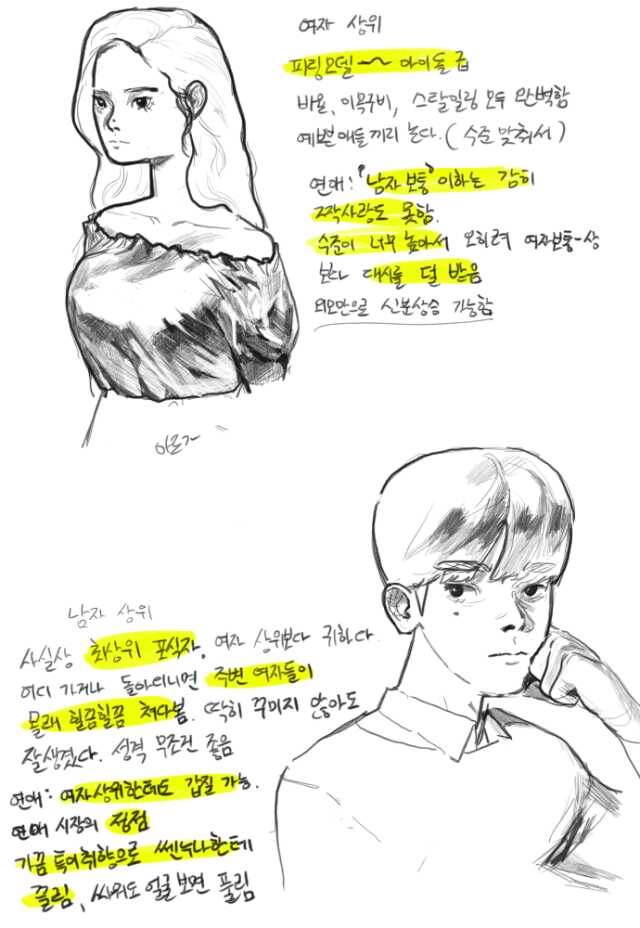 여자 상위
피팅모델 ~ 아이돌급
비율, 이목구비, 스타일링 모두 완벽함
예쁜 애들끼리 논다. (수준 맞춰서)
연애: "남자 보통" 이하는 감히
짝사랑도 못함.
수준이 너무 높아서 오히려 여자보통~상
보다 대시를 덜 받음
외모만으로 신분상승 가능함
남자 상위
사실상 최상위 포식자. 여자 상위보다 귀하다.
어디 가거나 돌아다니면 주변 여자들이
몰래 힐끔힐끔 쳐다봄. 딱히 꾸미지 않아도
잘생겼다. 성격 무조건 좋음
연애: 여자상위한테도 갑질 가능.
연애 시장의 정점
가끔 특이취향으로 쎈누나한테
끌림, 싸워도 얼굴보면 풀림